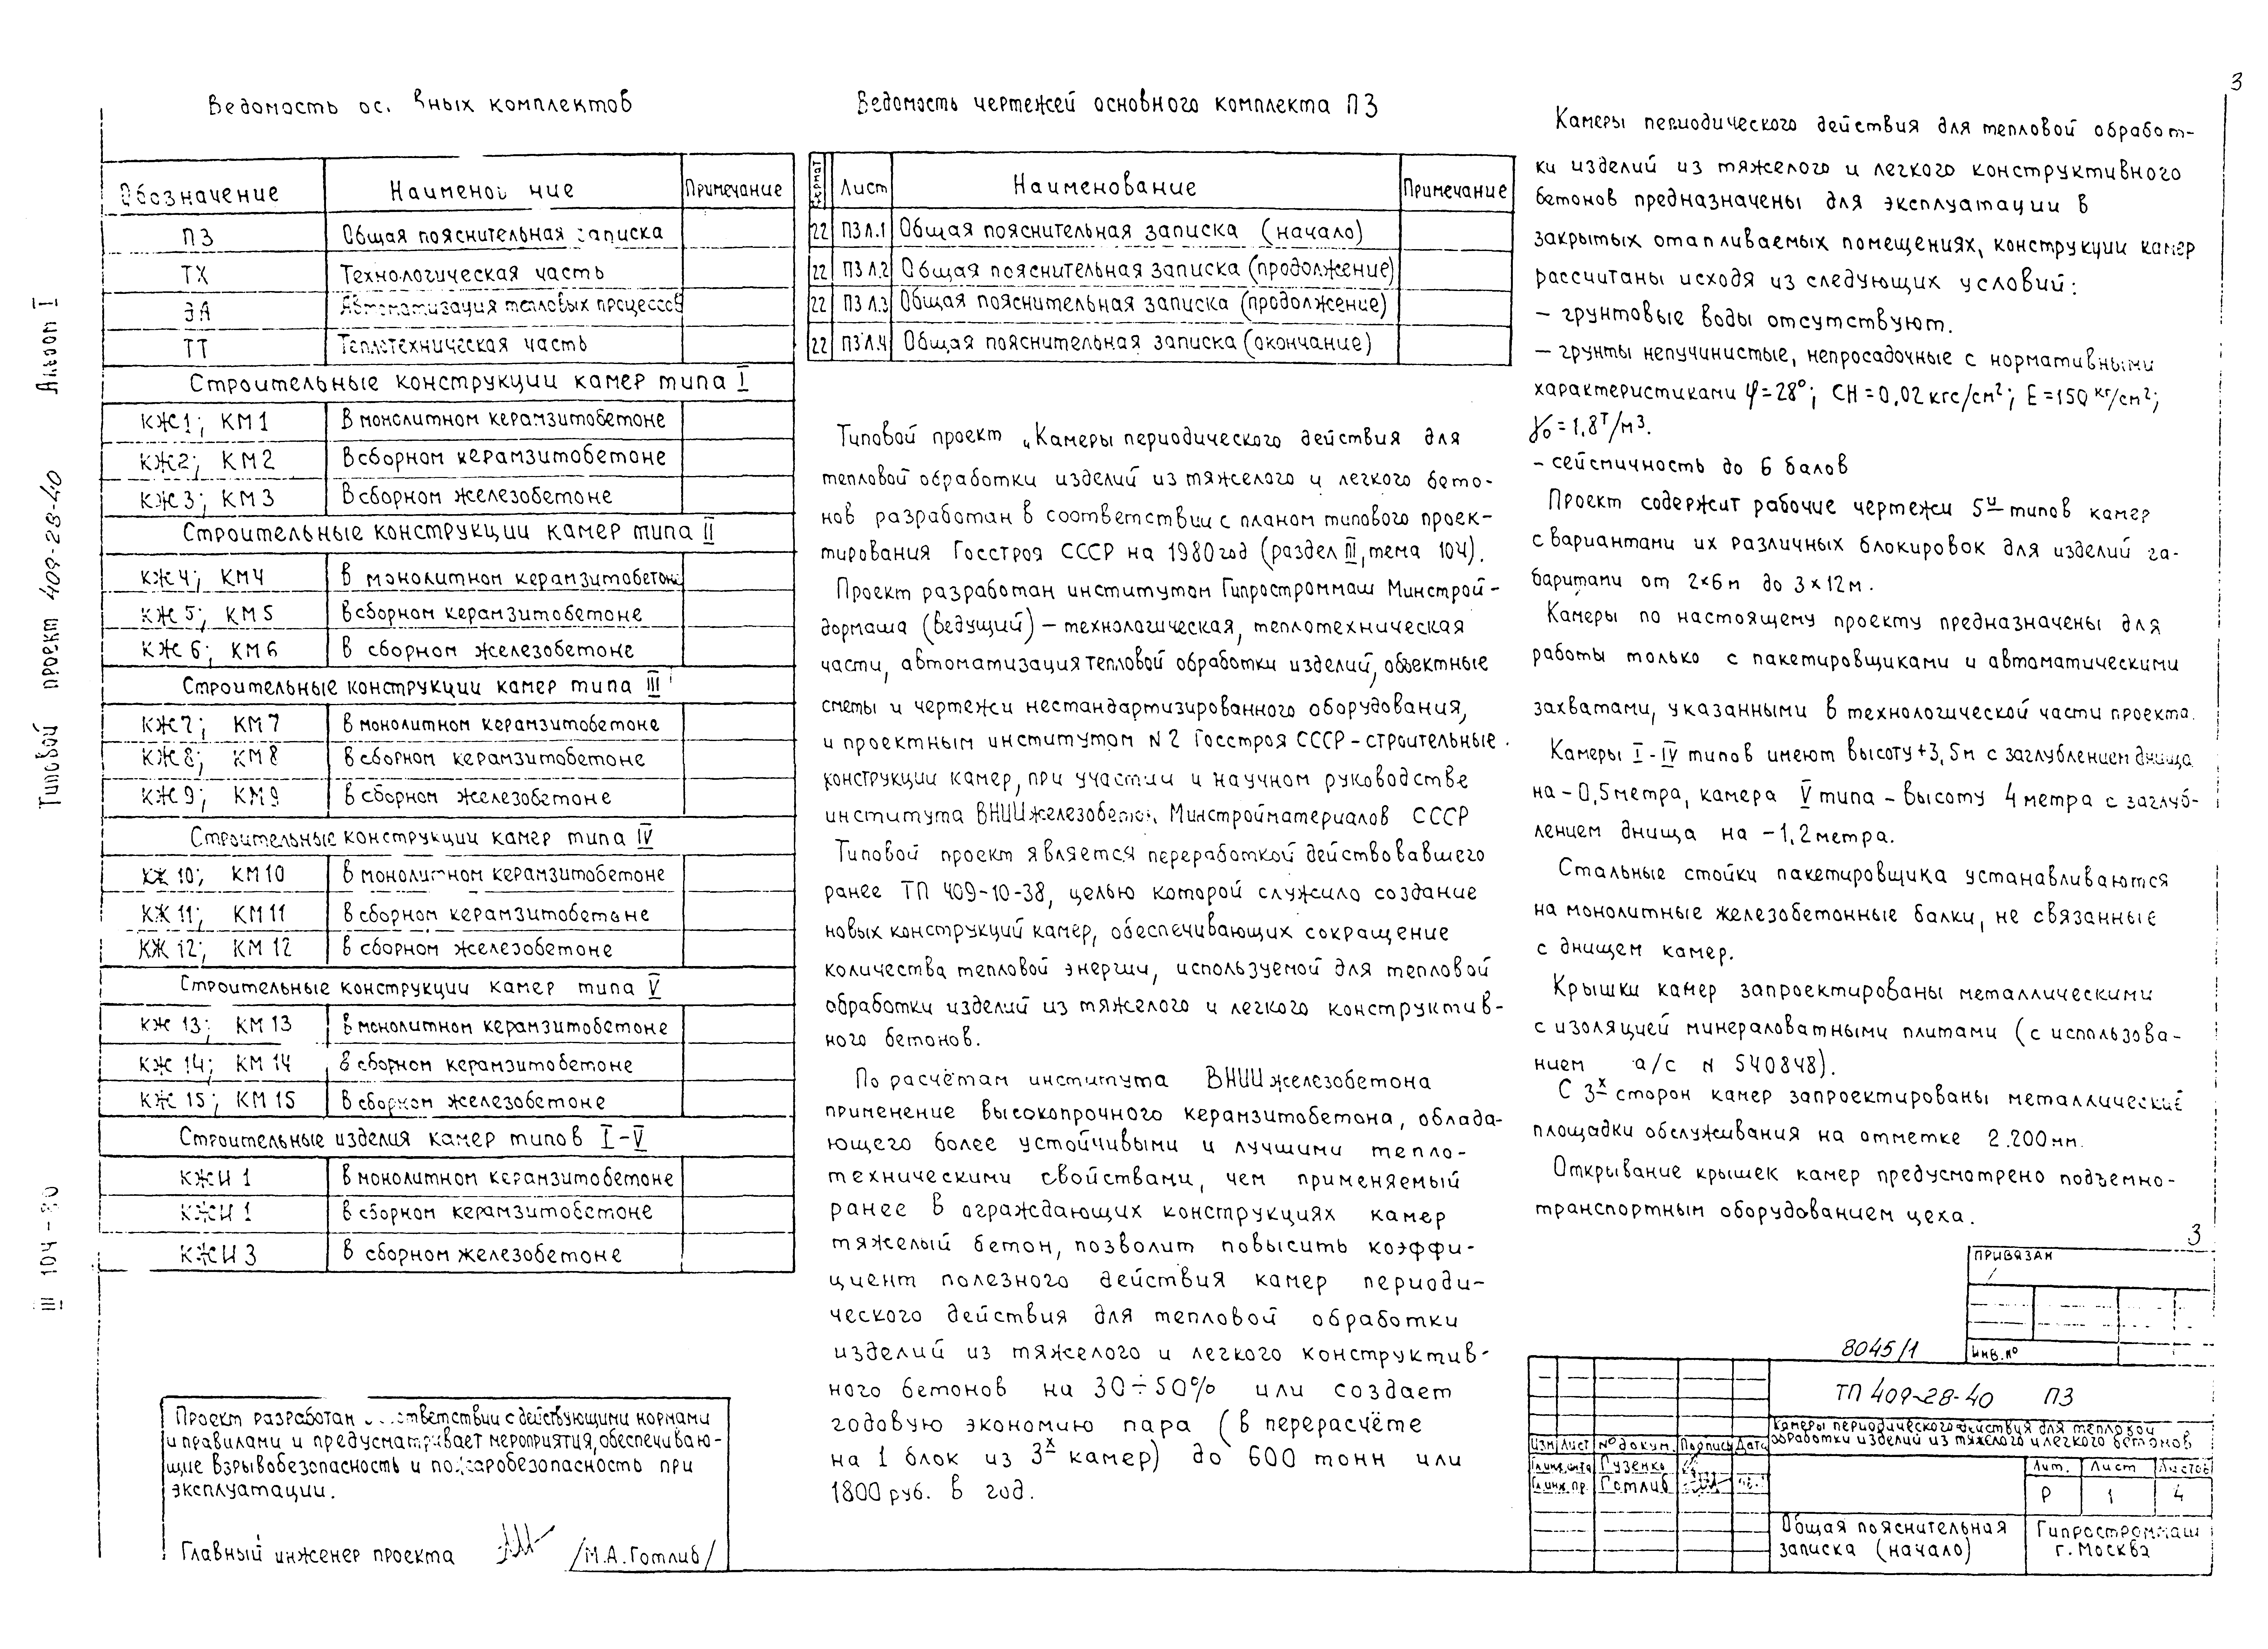 3
Альбом I
Типовой проект 409-28-40
III 104-80
Ведомость ос. вных комплектов
Обозначение Наименов ние Примечание
ПЗ Общая пояснительная записка
ТХ Технологическая часть
ЭА Автоматизация тепловых процессов
ТТ Теплотехническая часть
Строительные конструкции камер типа I
КЖ1; КМ1 В монолитном керамзитобетоне
КЖ2; КМ2 В сборном керамзитобетоне
КЖ3; КМ3 В сборном железобетоне
Строительные конструкции камер типа II
КЖ4; КМ4 В монолитном керамзитобетоне
КЖ5; КМ5 в сборном керамзитобетоне
КЖ6; КМ6 В сборном железобетоне
Строительные конструкции камер типа III
КЖ7; КМ7 в монолитном керамзитобетоне
КЖ8; КМ8 в сборном керамзитобетоне
КЖ9; КМ9 в сборном железобетоне
Строительные конструкции камер типа IV
КЖ10; КМ10 в монолитном керамзитобетоне
КЖ11; КМ11 в сборном керамзитобетоне
КЖ12; КМ12 в сборном железобетоне
Строительные конструкции камер типа V
КЖ13; КМ13 в монолитном керамзитобетоне
КЖ14; КМ14 в сборном керамзитобетоне
КЖ15; КМ15 В сборном железобетоне
Строительные изделия камер типов I-V
КЖИ 1 в монолитном керамзитобетоне
КЖИ 1 в сборном керамзитобетоне
КЖИ 3 в сборном железобетоне
Проект разработан тветствии с действующими нормами
и правилами и предусматривает мероприятия, обеспечиваю-
щие взрывобезопасность и пожаробезопасность при
эксплуатации.
Главный инженер проекта /М.А.Готлиб/
Ведомость чертежей основного комплекта ПЗ
Формат Лист Наименование Примечание
22 ПЗ Л.1 Общая пояснительная записка (начало)
22 ПЗ Л.2 Общая пояснительная записка (продолжение)
22 ПЗ Л.3 Общая пояснительная записка (продолжение)
22 ПЗ Л.4 Общая пояснительная записка (окончание)
Типовой проект „Камеры периодического действия для
тепловой обработки изделий из тяжелого и легкого бето-
нов разработан в соответствии с планом типового проек-
тирования Госстроя СССР на 1980 год (раздел III, тема 104).
Проект разработан институтом Гипростроммаш Минстрой-
дормаша (ведущий) – технологическая, теплотехническая
части, автоматизация тепловой обработки изделий, объектные
сметы и чертежи нестандартизированного оборудования,
и проектным институтом N 2 Госстроя СССР - строительные
конструкции камер, при участии и научном руководстве
института ВНИИжелезобетон. Минстройматериалов СССР
Типовой проект является переработкой действовавшего
ранее ТП 409-10-38, целью которой служило создание
новых конструкций камер, обеспечивающих сокращение
количества тепловой энергии, используемой для тепловой
обработки изделий из тяжелого и легкого конструктив-
ного бетонов.
По расчётам института ВНИИжелезобетона
применение высокопрочного керамзитобетона, облада-
ющего более устойчивыми и лучшими тепло-
техническими свойствами, чем применяемый
ранее в ограждающих конструкциях камер
тяжелый бетон, позволит повысить коэффи-
циент полезного действия камер периоди-
ческого действия для тепловой обработки
изделий из тяжелого и легкого конструктив-
ного бетонов на 30÷50% или создает
годовую экономию пара (в перерасчёте
на 1 блок из 3х камер) до 600 тонн или
1800 руб. в год.
Камеры периодического действия для тепловой обработ-
ки изделий из тяжелого и легкого конструктивного
бетонов предназначены для эксплуатации в
закрытых отапливаемых помещениях, конструкции камер
рассчитаны исходя из следующих условий:
– грунтовые воды отсутствуют.
– грунты непучинистые, непросадочные с нормативными
характеристиками φ=28°; СН=0,02 кгс/см²; Е=150 кг/см²;
γ₀=1,8 т/м³.
– сейсмичность до 6 балов
Проект содержит рабочие чертежи 5и типов камер
с вариантами их различных блокировок для изделий га-
баритами от 2×6м до 3×12м.
Камеры по настоящему проекту предназначены для
работы только с пакетировщиками и автоматическими
захватами, указанными в технологической части проекта.
Камеры I-IV типов имеют высоту +3,5м с заглублением днища
на -0,5 метра, камера V типа – высоту 4 метра с заглуб-
лением днища на -1,2 метра.
Стальные стойки пакетировщика устанавливаются
на монолитные железобетонные балки, не связанные
с днищем камер.
Крышки камер запроектированы металлическими
с изоляцией минераловатными плитами (с использова-
нием а/с N 540848).
С 3х сторон камер запроектированы металлические
площадки обслуживания на отметке 2.200мм.
Открывание крышек камер предусмотрено подъемно-
транспортным оборудованием цеха.
3
Привязан
Инв.№
8045/1
ТП 409-28-40 ПЗ
Камеры периодического действия для тепловой
обработки изделий из тяжелого и легкого бетонов
Изм Лист № докум. Подпись Дата
Гл.инж.инта Гузенко
Гл.инж.пр. Готлиб
Лит. Лист Листов
Р 1 4
Общая пояснительная
записка (начало)
Гипростроммаш
г. Москва